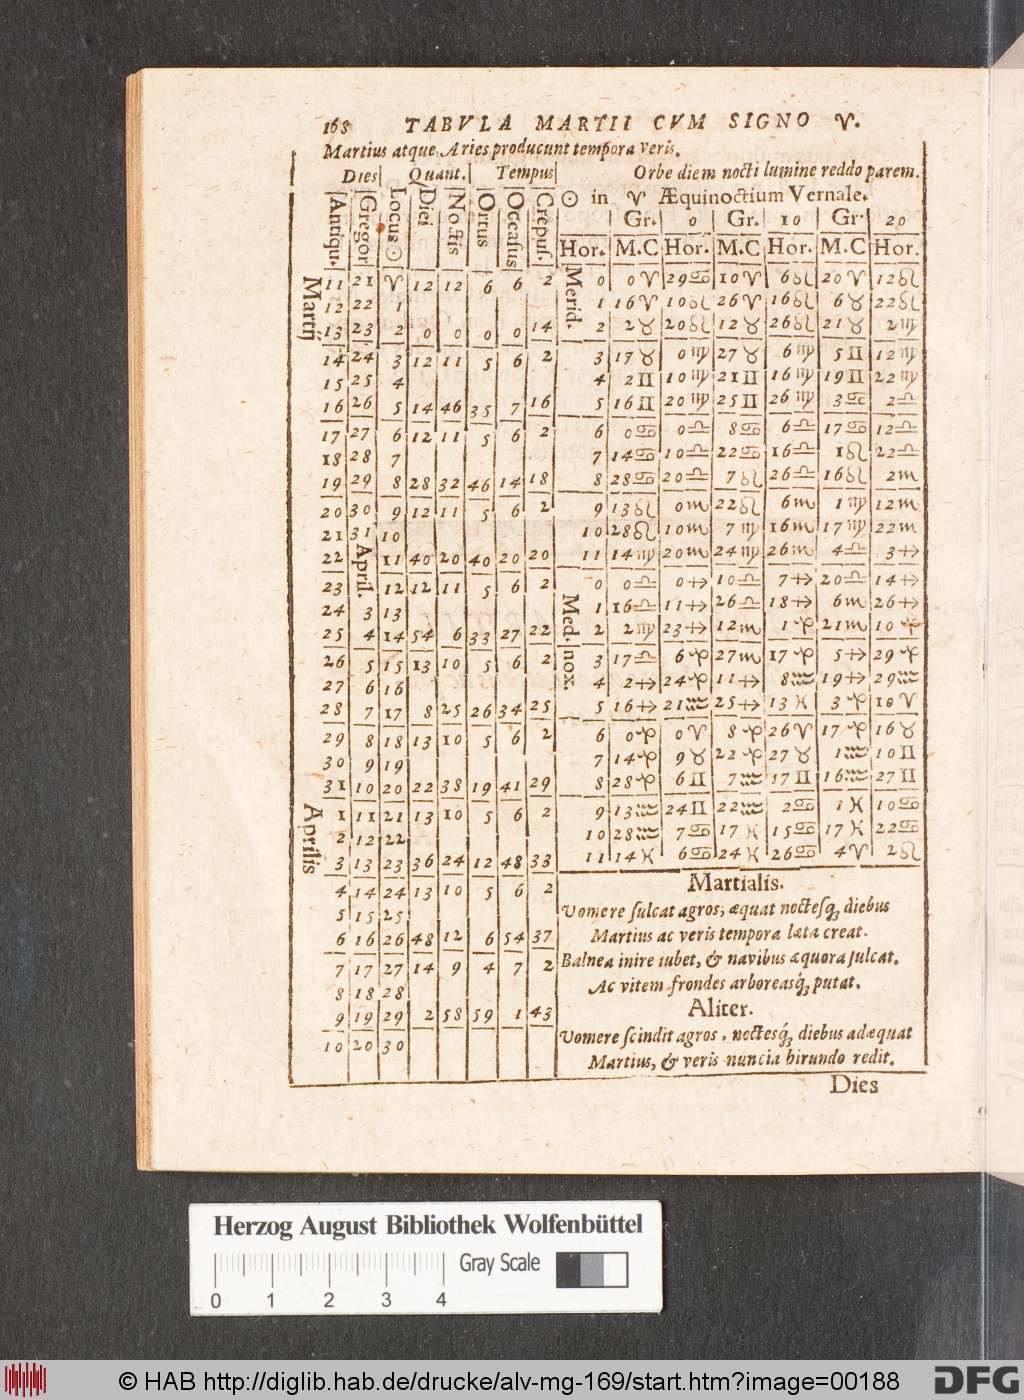 168 TABVLA MARTII CVM SIGNO ♈.
Martius atque Aries producunt tempora veris.
Dies | Quant. | Tempus | Orbe diem nocti lumine reddo parem.
Antiqu. | Gregor | Locus ☉ | Diei | Noctis | Ortus | Occasus | Crepus.
Martij
11 | 21 | ♈ | 12 | 12 | 6 | 6 | 2
12 | 22 | 1
13 | 23 | 2 | 0 | 0 | 0 | 0 | 14
14 | 24 | 3 | 12 | 11 | 5 | 6 | 2
15 | 25 | 4
16 | 26 | 5 | 14 | 46 | 35 | 7 | 16
17 | 27 | 6 | 12 | 11 | 5 | 6 | 2
18 | 28 | 7
19 | 29 | 8 | 28 | 32 | 46 | 14 | 18
20 | 30 | 9 | 12 | 11 | 5 | 6 | 2
21 | 31 | 10
22 | April. | 11 | 40 | 20 | 40 | 20 | 20
23 | 12 | 12 | 11 | 5 | 6 | 2
24 | 3 | 13
25 | 4 | 14 | 54 | 6 | 33 | 27 | 22
26 | 5 | 15 | 13 | 10 | 5 | 6 | 2
27 | 6 | 16
28 | 7 | 17 | 8 | 25 | 26 | 34 | 25
29 | 8 | 18 | 13 | 10 | 5 | 6 | 2
30 | 9 | 19
31 | 10 | 20 | 22 | 38 | 19 | 41 | 29
Aprilis
1 | 11 | 21 | 13 | 10 | 5 | 6 | 2
2 | 12 | 22
3 | 13 | 23 | 36 | 24 | 12 | 48 | 33
4 | 14 | 24 | 13 | 10 | 5 | 6 | 2
5 | 15 | 25
6 | 16 | 26 | 48 | 12 | 6 | 54 | 37
7 | 17 | 27 | 14 | 9 | 4 | 7 | 2
8 | 18 | 28
9 | 19 | 29 | 2 | 58 | 59 | 1 | 43
10 | 20 | 30
☉ in ♈ Æquinoctium Vernale.
Gr. | 0 | Gr. | 10 | Gr. | 20
Hor. | M.C | Hor. | M.C | Hor. | M.C | Hor.
Merid.
0 | 0♈ | 29♋ | 10♈ | 6♌ | 20♈ | 12♌
1 | 16♈ | 10♌ | 26♈ | 16♌ | 6♉ | 22♌
2 | 2♉ | 20♌ | 12♉ | 26♌ | 21♉ | 2♍
3 | 17♉ | 0♍ | 27♉ | 6♍ | 5♊ | 12♍
4 | 2♊ | 10♍ | 21♊ | 16♍ | 19♊ | 22♍
5 | 16♊ | 20♍ | 25♊ | 26♍ | 3♋ | 2♎
6 | 0♋ | 0♎ | 8♋ | 6♎ | 17♋ | 12♎
7 | 14♋ | 10♎ | 22♋ | 16♎ | 1♌ | 22♎
8 | 28♋ | 20♎ | 7♌ | 26♎ | 16♌ | 2♏
9 | 13♌ | 0♏ | 22♌ | 6♏ | 1♍ | 12♏
10 | 28♌ | 10♏ | 7♍ | 16♏ | 17♍ | 22♏
11 | 14♍ | 20♏ | 24♍ | 26♏ | 4♎ | 3♐
Med. nox.
0 | 0♎ | 0♐ | 10♎ | 7♐ | 20♎ | 14♐
1 | 16♎ | 11♐ | 26♎ | 18♐ | 6♏ | 26♐
2 | 2♍ | 23♐ | 12♏ | 1♑ | 21♏ | 10♑
3 | 17♎ | 6♑ | 27♏ | 17♑ | 5♐ | 29♑
4 | 2♐ | 24♑ | 11♐ | 8♒ | 19♐ | 29♒
5 | 16♐ | 21♒ | 25♐ | 13♓ | 3♑ | 10♈
6 | 0♑ | 0♈ | 8♑ | 26♈ | 17♑ | 16♉
7 | 14♑ | 9♉ | 22♑ | 27♉ | 1♒ | 10♊
8 | 28♑ | 6♊ | 7♒ | 17♊ | 16♒ | 27♊
9 | 13♒ | 24♊ | 22♒ | 2♋ | 1♓ | 10♋
10 | 28♒ | 7♋ | 17♓ | 15♋ | 17♓ | 22♋
11 | 14♓ | 6♋ | 24♓ | 26♋ | 4♈ | 2♌
Martialis.
Vomere sulcat agros, æquat noctesq́; diebus
Martius ac veris tempora læta creat.
Balnea inire iubet, & navibus æquora sulcat.
Ac vitem frondes arboreasq́; putat.
Aliter.
Vomere scindit agros, noctesq́; diebus adæquat
Martius, & veris nuncia hirundo redit.
Dies
Herzog August Bibliothek Wolfenbüttel
Gray Scale
0 1 2 3 4
© HAB http://diglib.hab.de/drucke/alv-mg-169/start.htm?image=00188
DFG